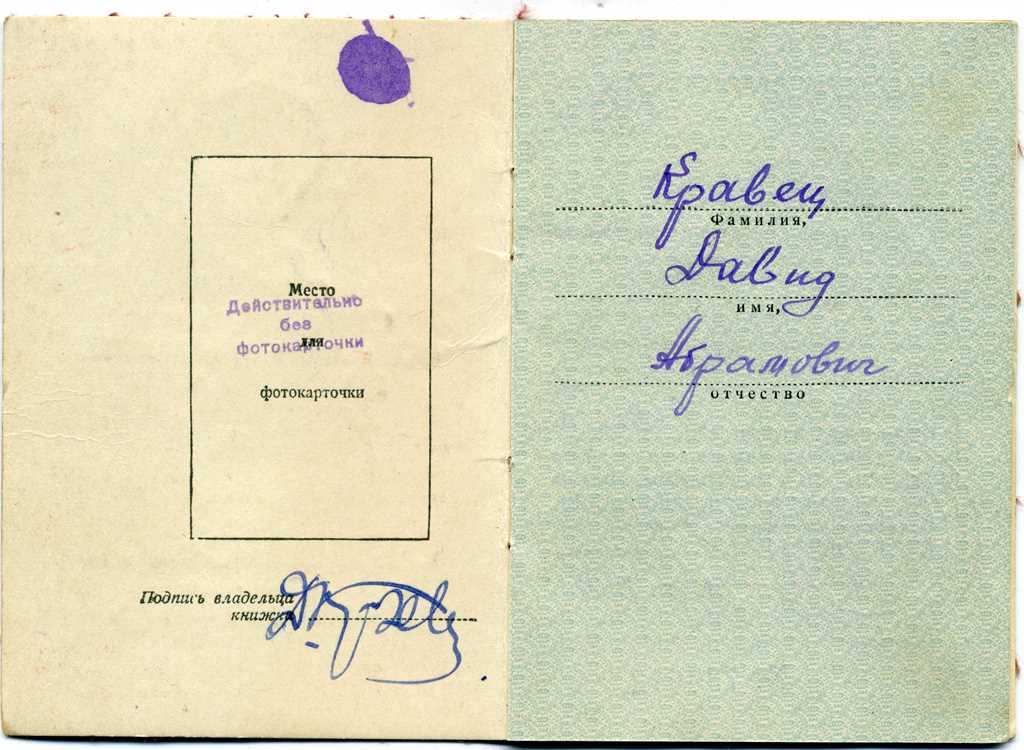 Место
Действительно
без
для
фотокарточки
фотокарточки
Подпись владельца
книжки
Кравец
Фамилия,
Давид
имя,
Абрамович
отчество